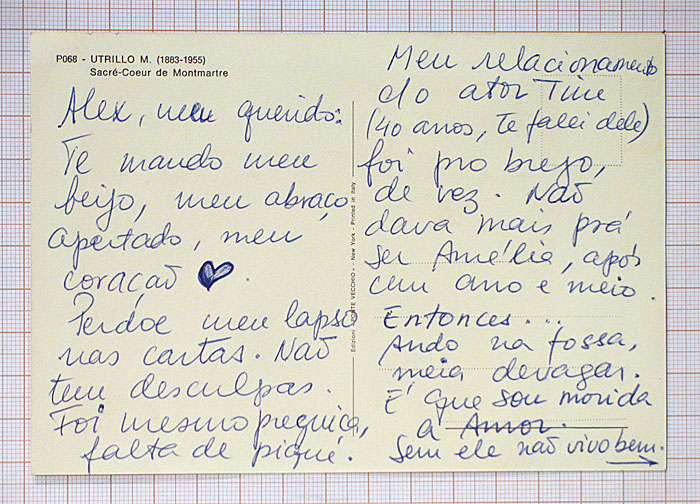 P068 - UTRILLO M. (1883-1955)
Sacré-Coeur de Montmartre
Alex, meu querido:
Te mando meu
beijo, meu abraço
apertado, meu
coração
Perdoe meu lapso
nas cartas. Não
tem desculpas.
Foi mesmo preguiça,
falta de piqué.
Edizioni PONTE VECCHIO - New York - Printed in Italy
Meu relacionamento
c/o ator Tim
(40 anos, te falei dele)
foi pro brejo,
de vez. Não
dava mais prá
ser Amélia, após
um ano e meio.
Entonces...
Ando na fossa,
meia devagar.
É que sou movida
a Amor.
Sem ele não vivo bem.